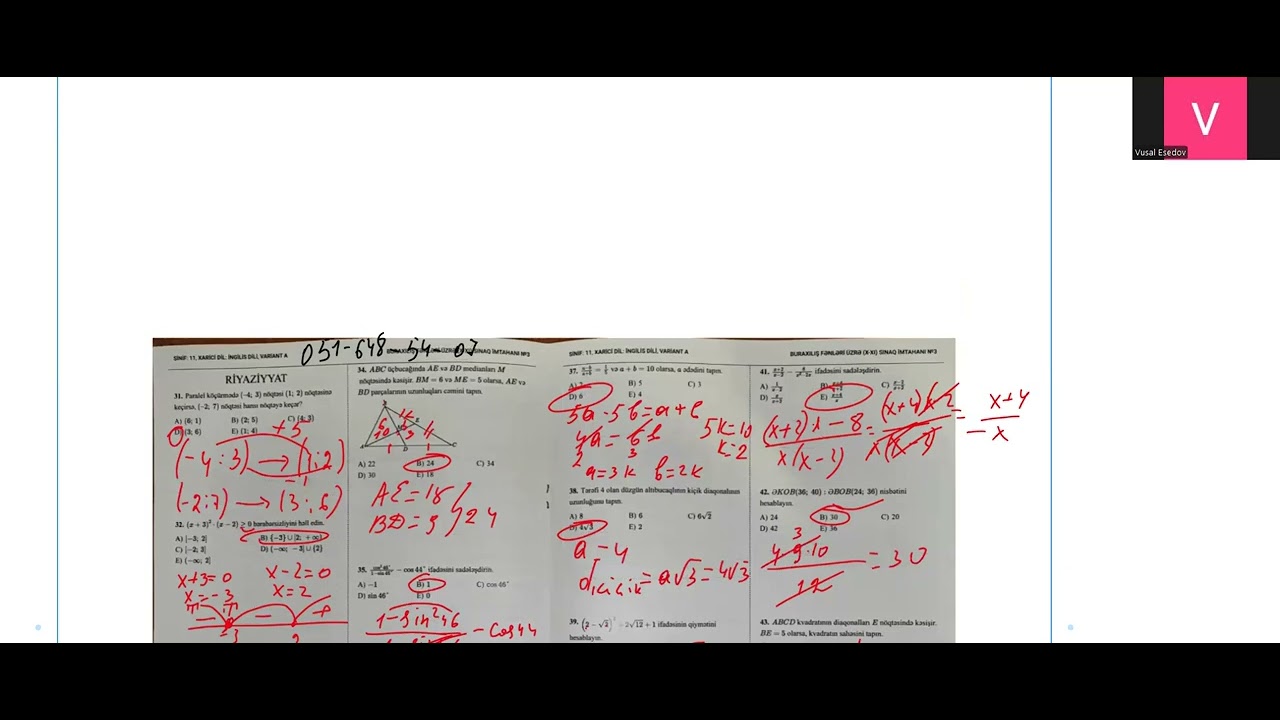 V
Vusal Esedov
051-648-54-07
SİNİF: 11, XARİCİ DİL: İNGİLİS DİLİ, VARIANT A
RİYAZİYYAT
31. Paralel köçürmədə (−4; 3) nöqtəsi (1; 2) nöqtəsinə
keçirsə, (−2; 7) nöqtəsi hansı nöqtəyə keçər?
A) (6; 1) B) (2; 5) C) (4; 3)
D) (3; 6) E) (1; 4)
+5
(-4;3) → (1;2)
-1
(-2;7) → (3;6)
32. (x + 3)² · (x − 2) ≥ 0 bərabərsizliyini həll edin.
A) [−3; 2] B) {−3} ∪ [2; +∞)
C) [−2; 3] D) (−∞; −3] ∪ {2}
E) (−∞; 2]
x+3=0 x-2=0
x=-3 x=2
-3 2
34. ABC üçbucağında AE və BD medianları M
nöqtəsində kəsişir. BM = 6 və ME = 5 olarsa, AE və
BD parçalarının uzunluqları cəmini tapın.
A) 22 B) 24 C) 34
D) 30 E) 18
AE=15
BD=9 24
35. cos²46°/1−sin46° − cos 44° ifadəsini sadələşdirin.
A) −1 B) 1 C) cos 46°
D) sin 46° E) 0
1-sin²46
-cos44
SİNİF: 11, XARİCİ DİL: İNGİLİS DİLİ, VARIANT A
və a + b = 10 olarsa, a ədədini tapın.
B) 5 C) 3
D) 6 E) 4
5a-5b=a+b
4a=6b 5k=10
2 3 k=2
a=3k b=2k
38. Tərəfi 4 olan düzgün altıbucaqlının kiçik diaqonalının
uzunluğunu tapın.
A) 8 B) 6 C) 6√2
D) 4√3 E) 2
a-4
dkicik=a√3=4√3
39. (2 − √2)² + 2√12 + 1 ifadəsinin qiymətini
hesablayın.
BURAXILIŞ FƏNLƏRİ ÜZRƏ (X-XI) SINAQ İMTAHANI №3
ifadəsini sadələşdirin.
(x+2)x-8/x(x-2)=(x+4)(x-2)/x(x-2)=x+4/x
42. ƏKOB(36; 40) : ƏBOB(24; 36) nisbətini
hesablayın.
A) 24 B) 30 C) 20
D) 42 E) 36
3
4·9·10/12=30
43. ABCD kvadratının diaqonalları E nöqtəsində kəsişir.
BE = 5 olarsa, kvadratın sahəsini tapın.